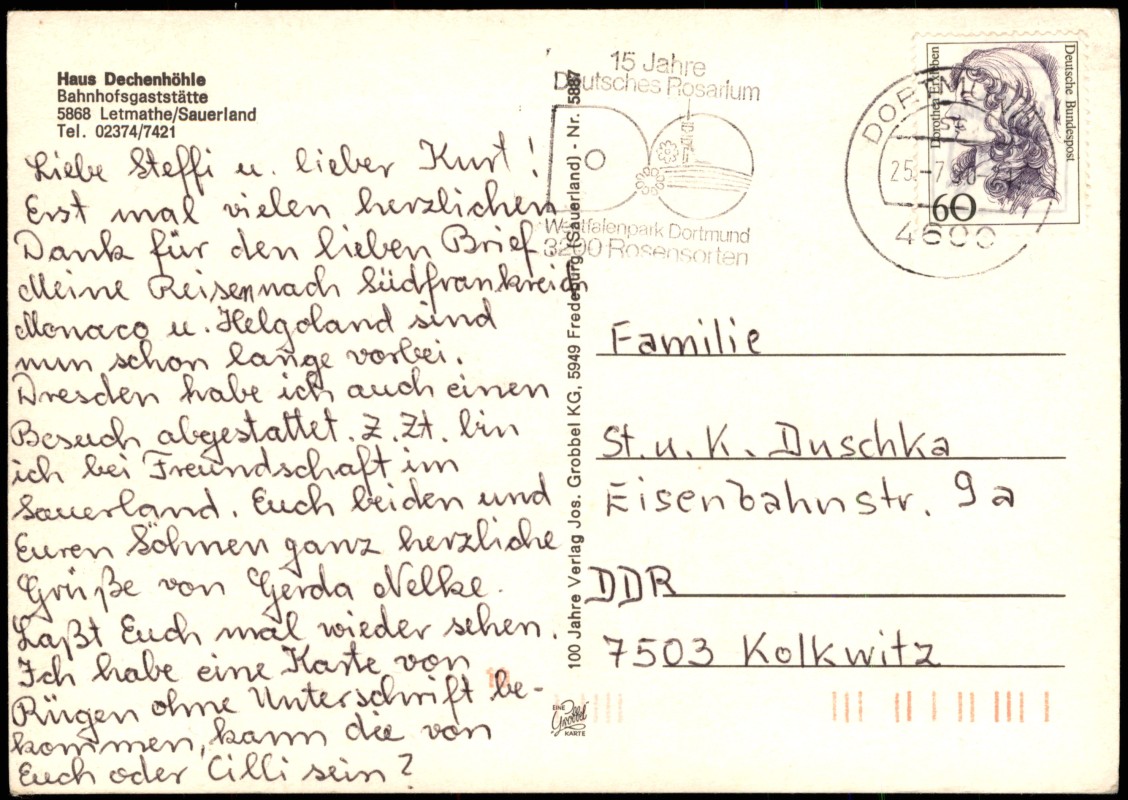 Haus Dechenhöhle
Bahnhofsgaststätte
5868 Letmathe/Sauerland
Tel. 02374/7421
Liebe Steffi u. lieber Kurt!
Erst mal vielen herzlichen
Dank für den lieben Brief.
Meine Reisen nach Südfrankreich
Monaco u. Helgoland sind
nun schon lange vorbei.
Dresden habe ich auch einen
Besuch abgestattet. Z. Zt. bin
ich bei Freundschaft im
Sauerland. Euch beiden und
Euren Söhnen ganz herzliche
Grüße von Gerda Nelke.
Laßt Euch mal wieder sehen.
Ich habe eine Karte von
Rügen ohne Unterschrift be-
kommen, kann die von
Euch oder Cilli sein?
100 Jahre Verlag Jos. Grobbel KG, 5949 Fredeburg (Sauerland) - Nr. 5887
EINE
Grobbel
KARTE
15 Jahre
Deutsches Rosarium
Westfalenpark Dortmund
3200 Rosensorten
DORTM
25.-7.90
4600
Dorothea Erxleben
Deutsche Bundespost
60
Familie
St. u. K. Duschka
Eisenbahnstr. 9a
DDR
7503 Kolkwitz